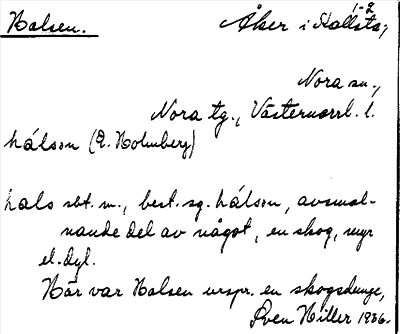 Halsen. Åker i Stallsta, 1-2
Nora sn.,
Nora tg., Västernorrl. l.
hálsꞷn (E. Holmberg)
hals sbt. m., best. sg. hálsꞷn, avsmal-
nande del av något, en skog, myr
el. dyl.
Här var Halsen urspr. en skogsdunge,
Sven Hiller 1936.